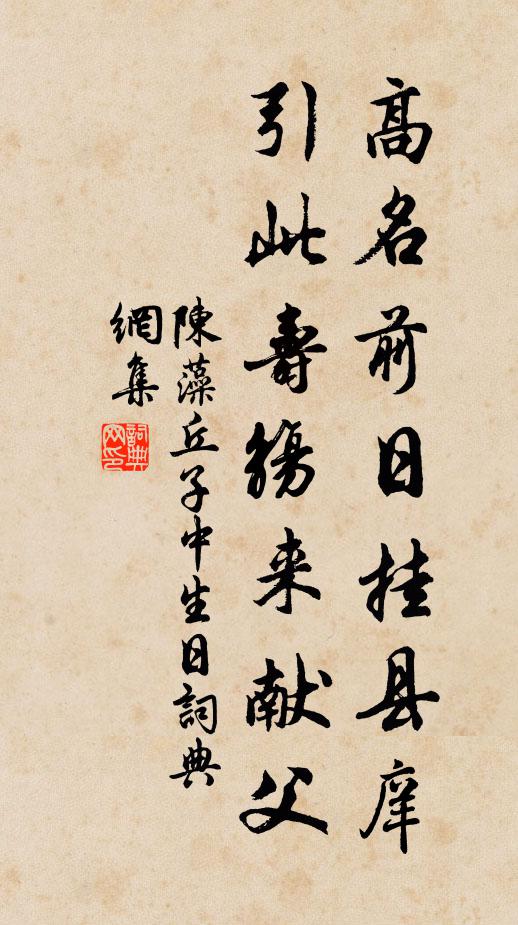 高名前日挂县庠
引此壽觴来献父
陳藻丘子中生日詞典
網集
詞典網印